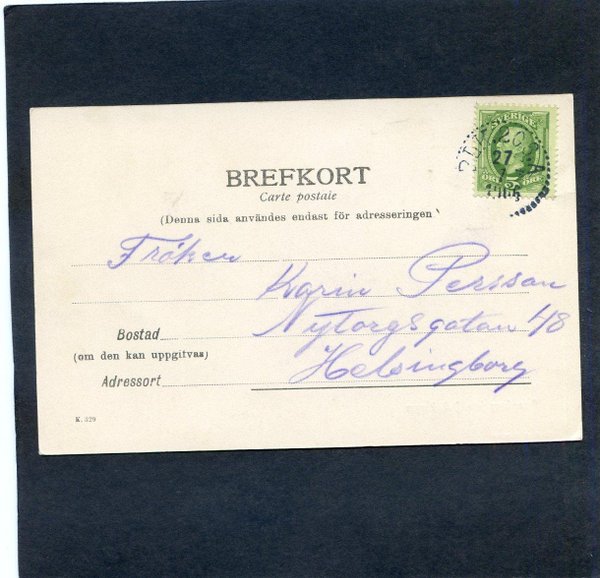 SVERIGE
27
1905
BREFKORT
Carte postale
(Denna sida användes endast för adresseringen)
Fröken
Karin Persson
Nytorgsgatan 48
Helsingborg
Bostad
(om den kan uppgitvas)
Adressort
K. 329